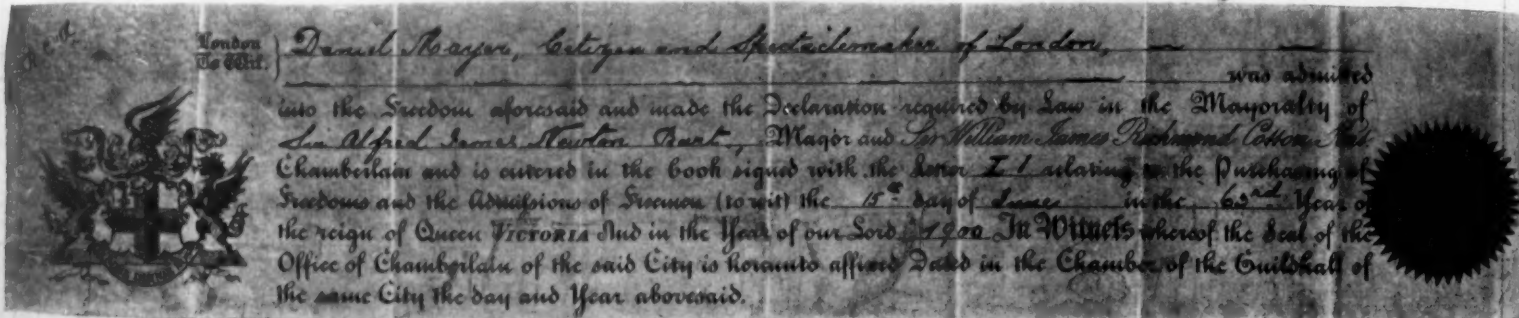 London
To Wit.
Daniel Mayer, Citizen and Spectaclemaker of London,
was admitted
into the Freedom aforesaid and made the Declaration required by Law in the Mayoralty of
Sir Alfred James Newton Bart, Mayor and Sir William James Richmond Cotton Knt
Chamberlain and is entered in the book signed with the Letter I 1 relating to the Purchasing of
Freedoms and the Admissions of Freemen (to wit) the 15th day of June in the 63rd Year of
the reign of Queen VICTORIA And in the Year of our Lord 1900 In Witness whereof the Seal of the
Office of Chamberlain of the said City is hereunto affixed Dated in the Chamber of the Guildhall of
the same City the day and Year abovesaid.